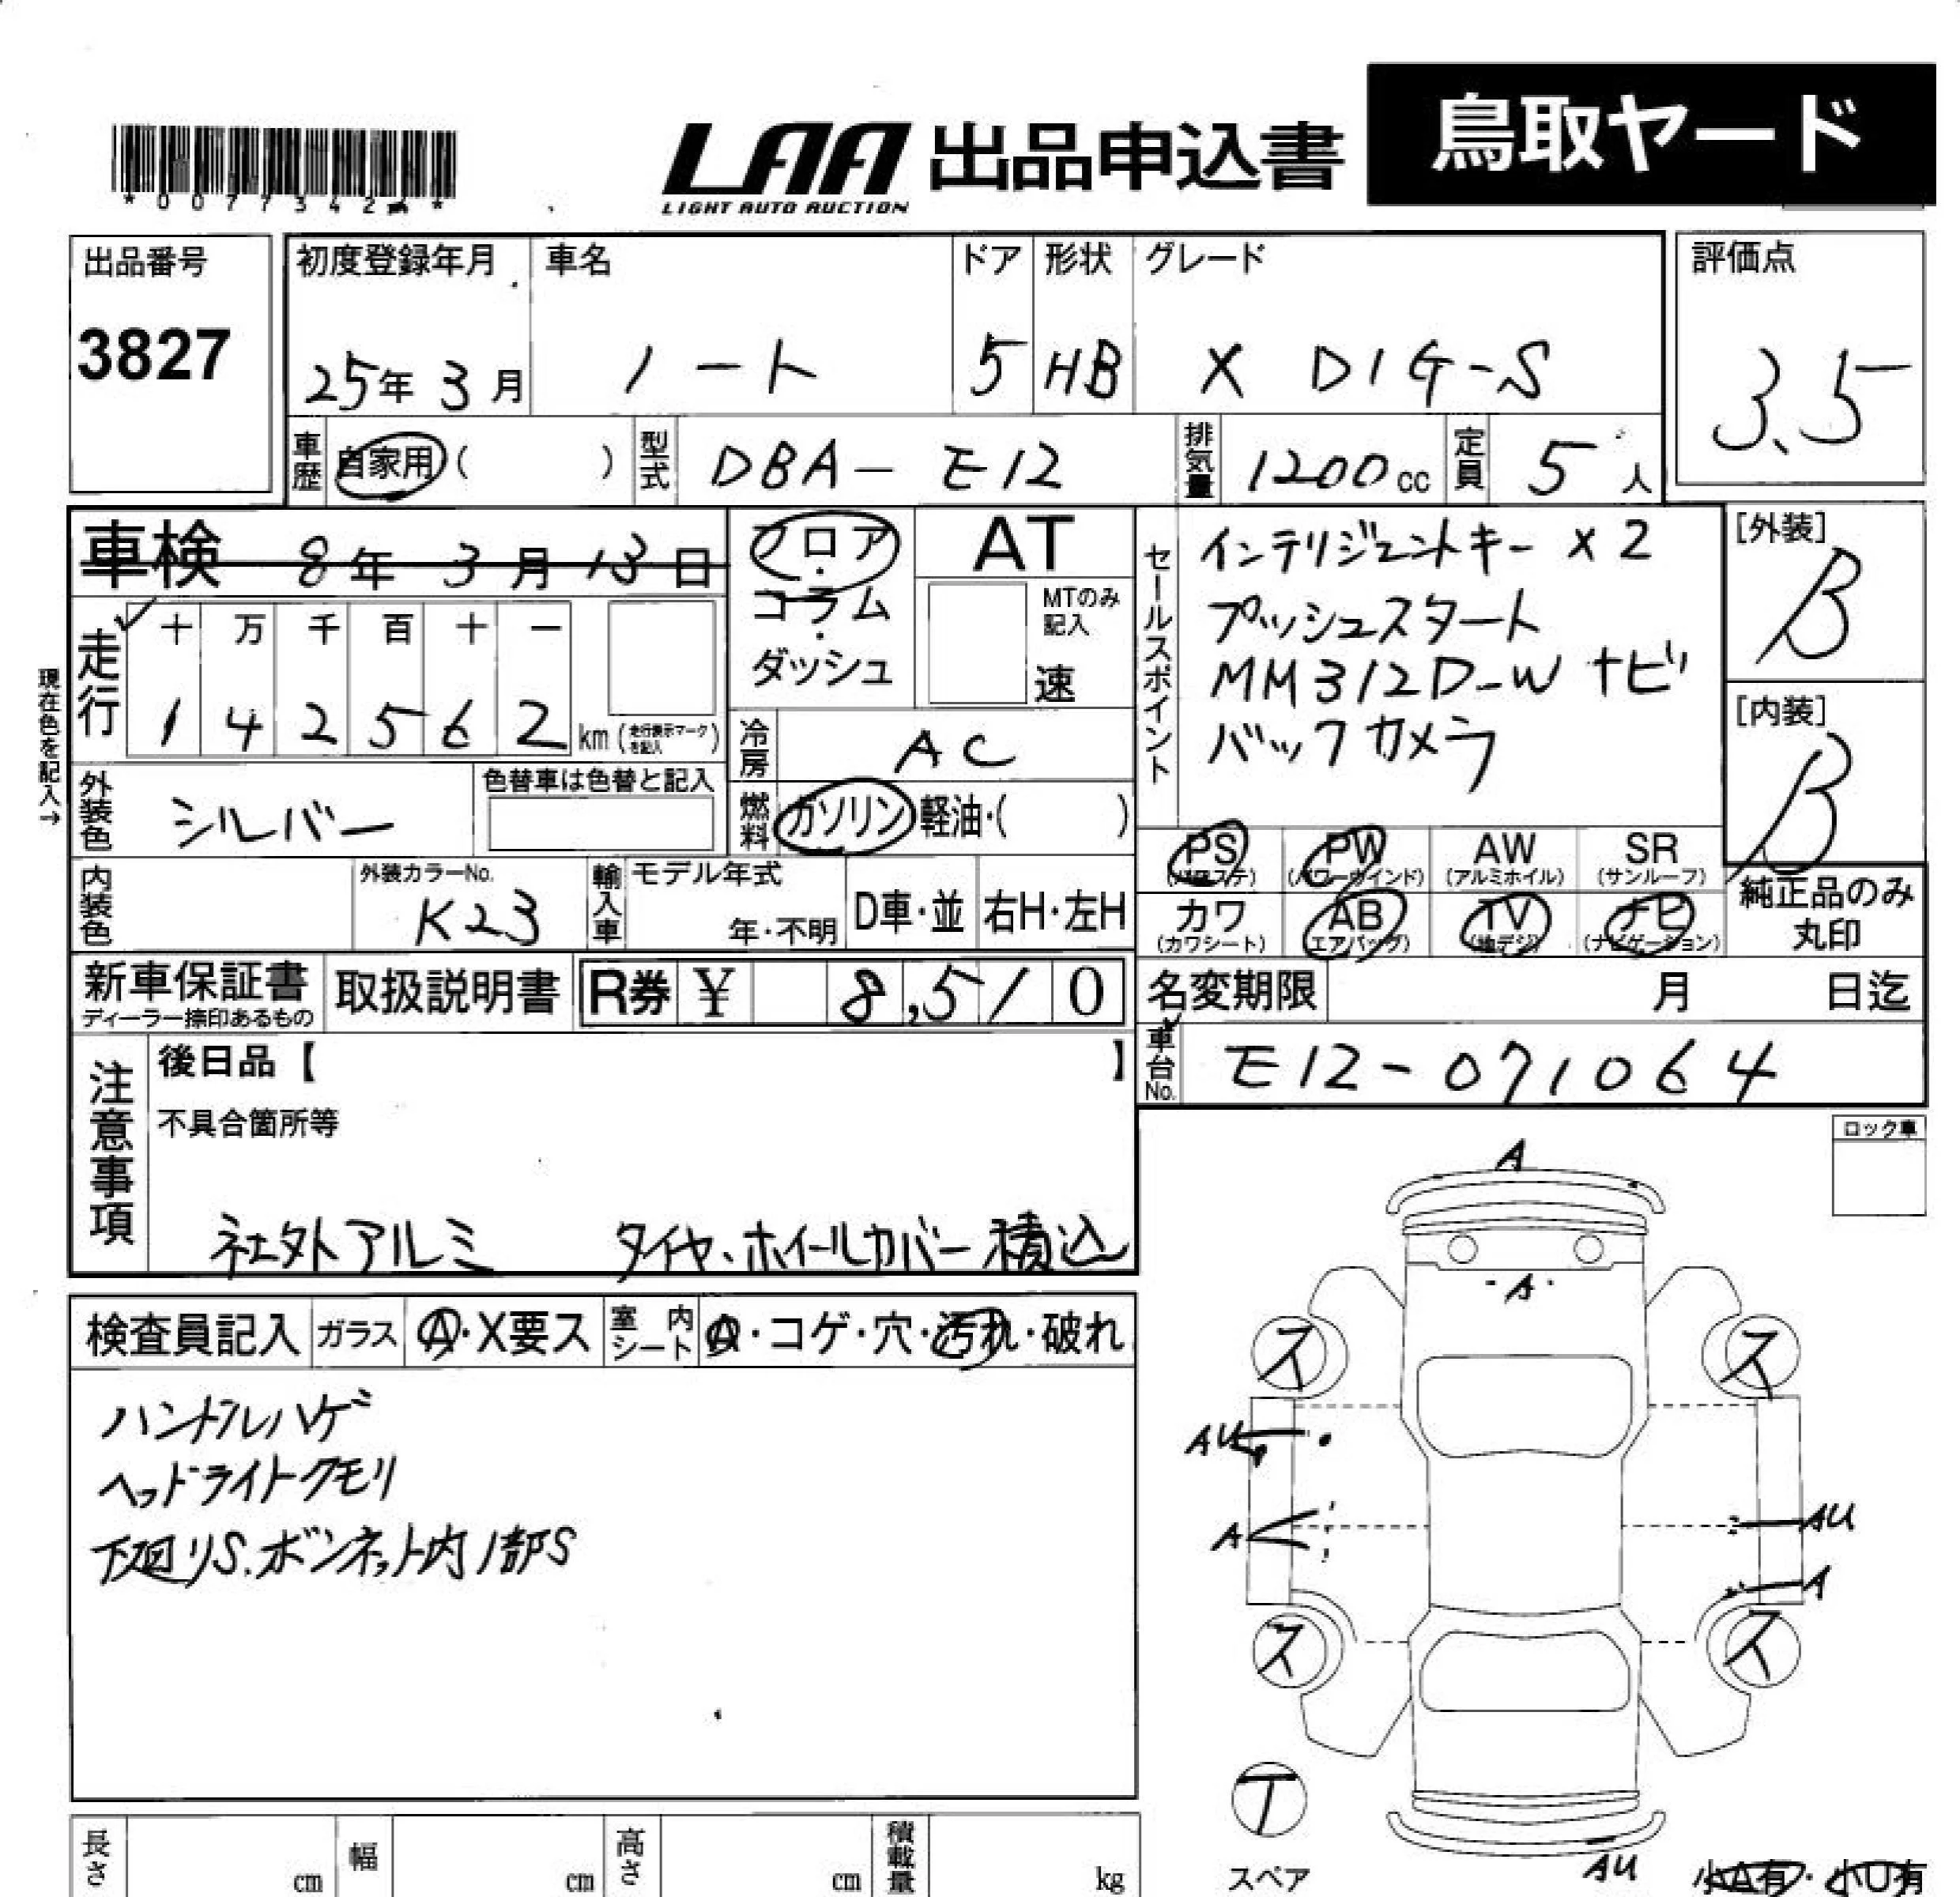 *0077342*
LAA 出品申込書 鳥取ヤード
LIGHT AUTO AUCTION
出品番号 3827
初度登録年月 25年 3月
車名 ノート
ドア 5
形状 HB
グレード X DIG-S
評価点 3.5
車歴 自家用 ( )
型式 DBA-E12
排気量 1200cc
定員 5人
車検 8年 3月 13日
フロア・コラム・ダッシュ
AT
MTのみ記入
速
セールスポイント
インテリジェントキー×2
プッシュスタート
MM312D-W ナビ
バックカメラ
[外装] B
[内装] B
現在色を記入→
走行 十 万 千 百 十 一
1 4 2 5 6 2 km (走行表示マークを記入)
冷房 AC
外装色 シルバー
色替車は色替と記入
燃料 ガソリン・軽油・( )
内装色
外装カラーNo. K23
輸入車 モデル年式 年・不明
D車・並 右H・左H
PS (パワステ) PW (パワーウインド) AW (アルミホイル) SR (サンルーフ)
カワ (カワシート) AB (エアバッグ) TV (地デジ) ナビ (ナビゲーション)
純正品のみ丸印
新車保証書 ディーラー捺印あるもの
取扱説明書
R券 ¥ 8,510
名変期限 月 日迄
車台No. E12-071064
注意事項
後日品【 】
不具合箇所等
社外アルミ タイヤ、ホイールカバー積込
ロック車
検査員記入 ガラス A・X要ス 室内シート A・コゲ・穴・汚れ・破れ
ハンドルハゲ
ヘッドライトクモリ
下廻りS.ボンネット内1部S
A
A
ス ス
AU
A AU
A
ス ス
T
スペア
AU
小A有・小U有
長さ cm 幅 cm 高さ cm 積載量 kg